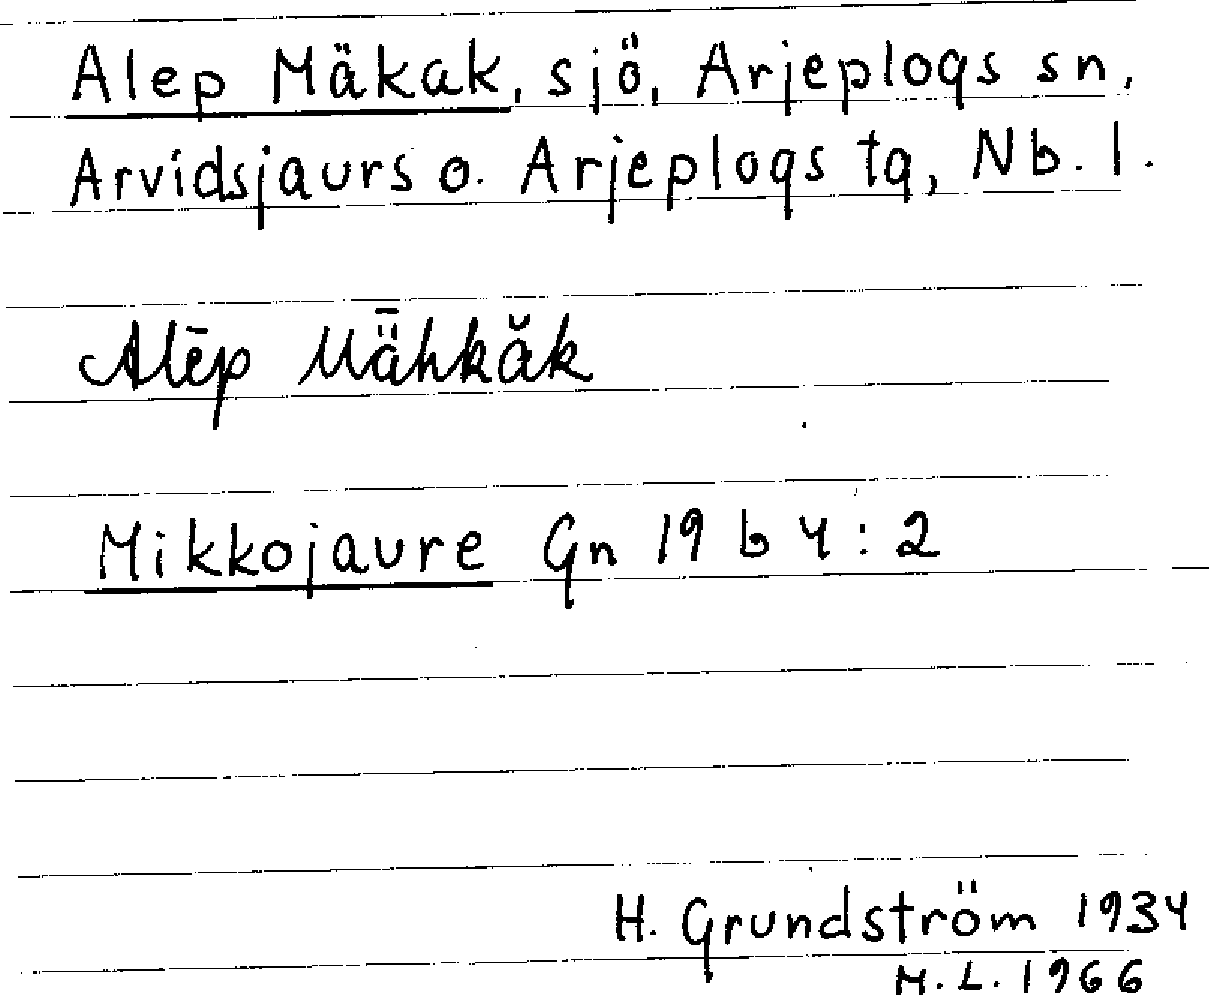 Alep Mäkak, sjö, Arjeplogs sn,
Arvidsjaurs o. Arjeplogs tg, Nb. l.
Alēp Mǟhkăk
Mikkojaure Gn 19 b 4 : 2
H. Grundström 1934
M. L. 1966